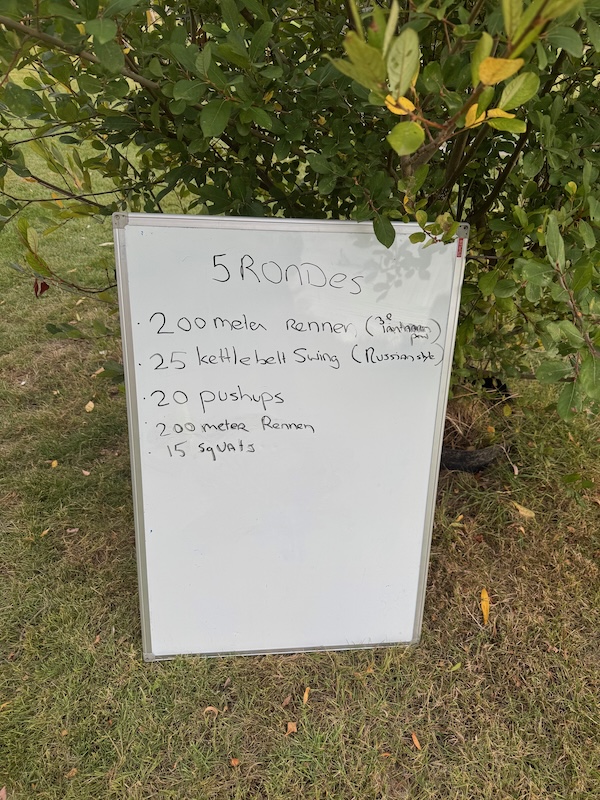 5 RONDES
200 meter Rennen (3e lantaarn paal)
25 kettlebell Swing (Russian style)
20 pushups
200 meter Rennen
15 squats